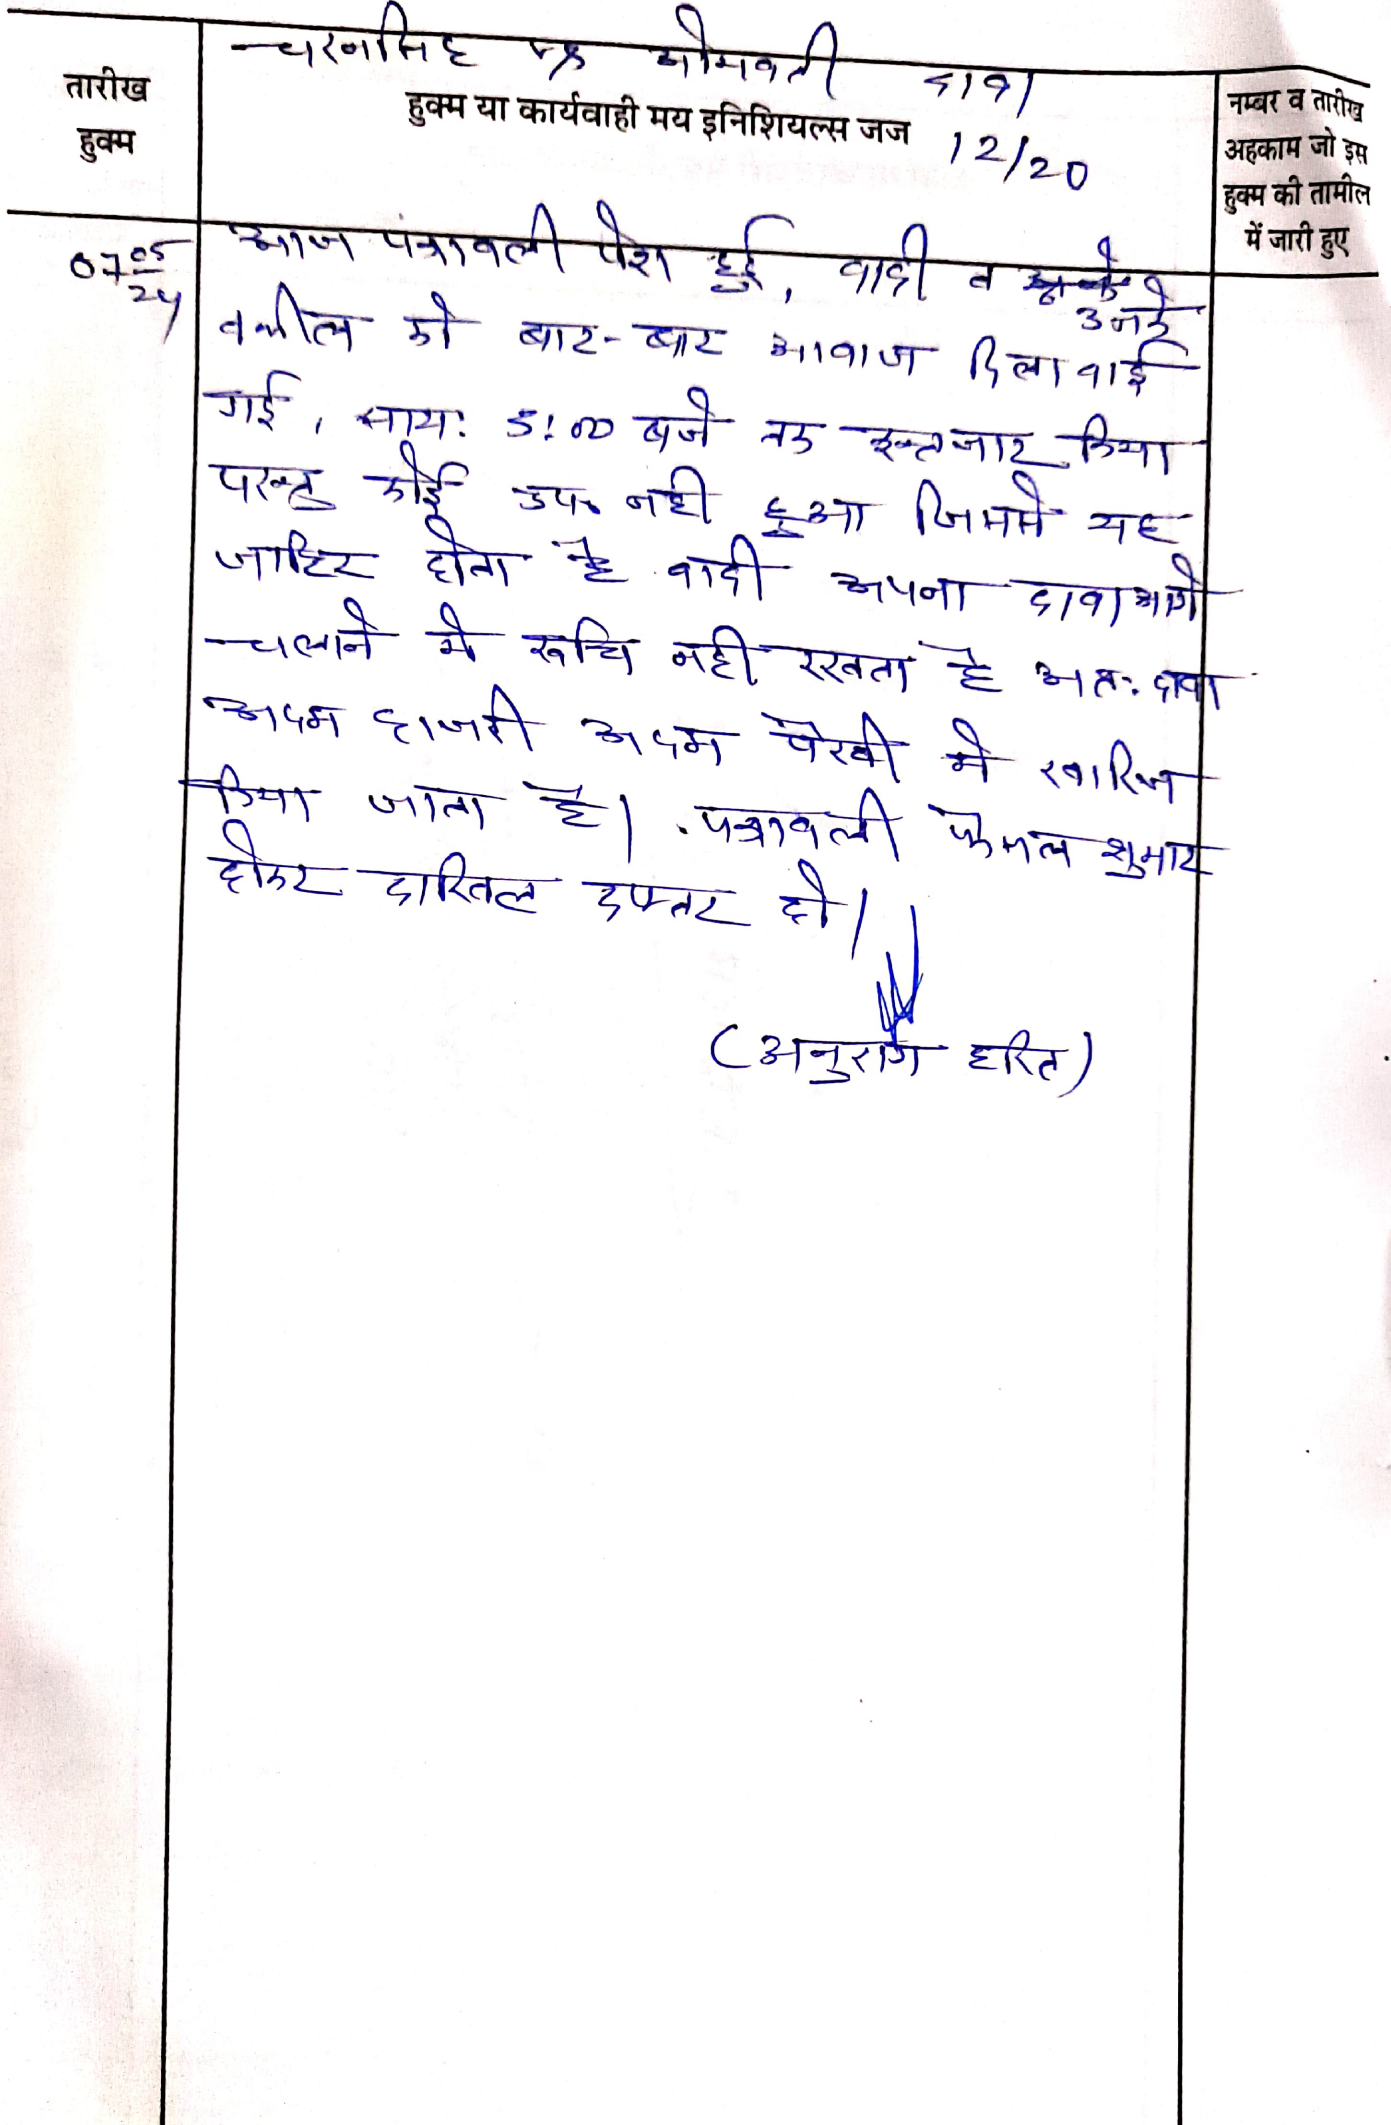 चरनसिंह vs सोमवती दावा
तारीख
हुक्म
हुक्म या कार्यवाही मय इनिशियल्स जज
12/20
नम्बर व तारीख
अहकाम जो इस
हुक्म की तामील
में जारी हुए
07/05/24
आज पत्रावली पेश हुई, वादी व उनके
वकील को बार-बार आवाज दिलावाई
गई, सायः 5:00 बजे तक इन्तजार किया
परन्तु कोई उप० नही हुआ जिससे यह
जाहिर होता है वादी अपना दावा आगे
चलाने मे रूचि नही रखता है अतः दावा
अदम हाजरी अदम पैरवी मे खारिज
किया जाता है। पत्रावली फैसल शुमार
होकर दाखिल दफ्तर हो।
(अनुराग हरित)